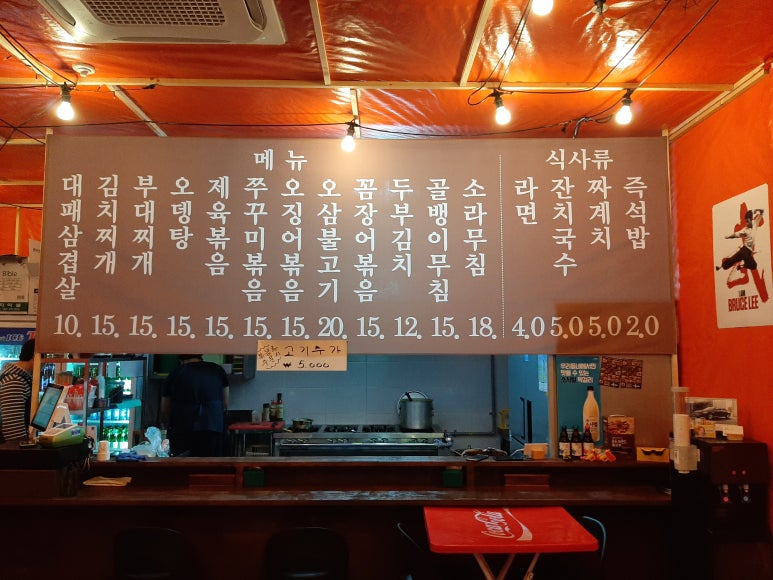 메뉴
대패삼겹살 10.
김치찌개 15.
부대찌개 15.
오뎅탕 15.
제육볶음 15.
쭈꾸미볶음 15.
오징어볶음 15.
오삼불고기 20.
꼼장어볶음 15.
두부김치 12.
골뱅이무침 15.
소라무침 18.
식사류
라면 4.0
잔치국수 5.0
짜계치 5.0
즉석밥 2.0
고기추가
₩ 5,000
우리동네에서만
맛볼 수 있는
막걸리
BRUCE LEE
Bible
ICE
Coca-Cola